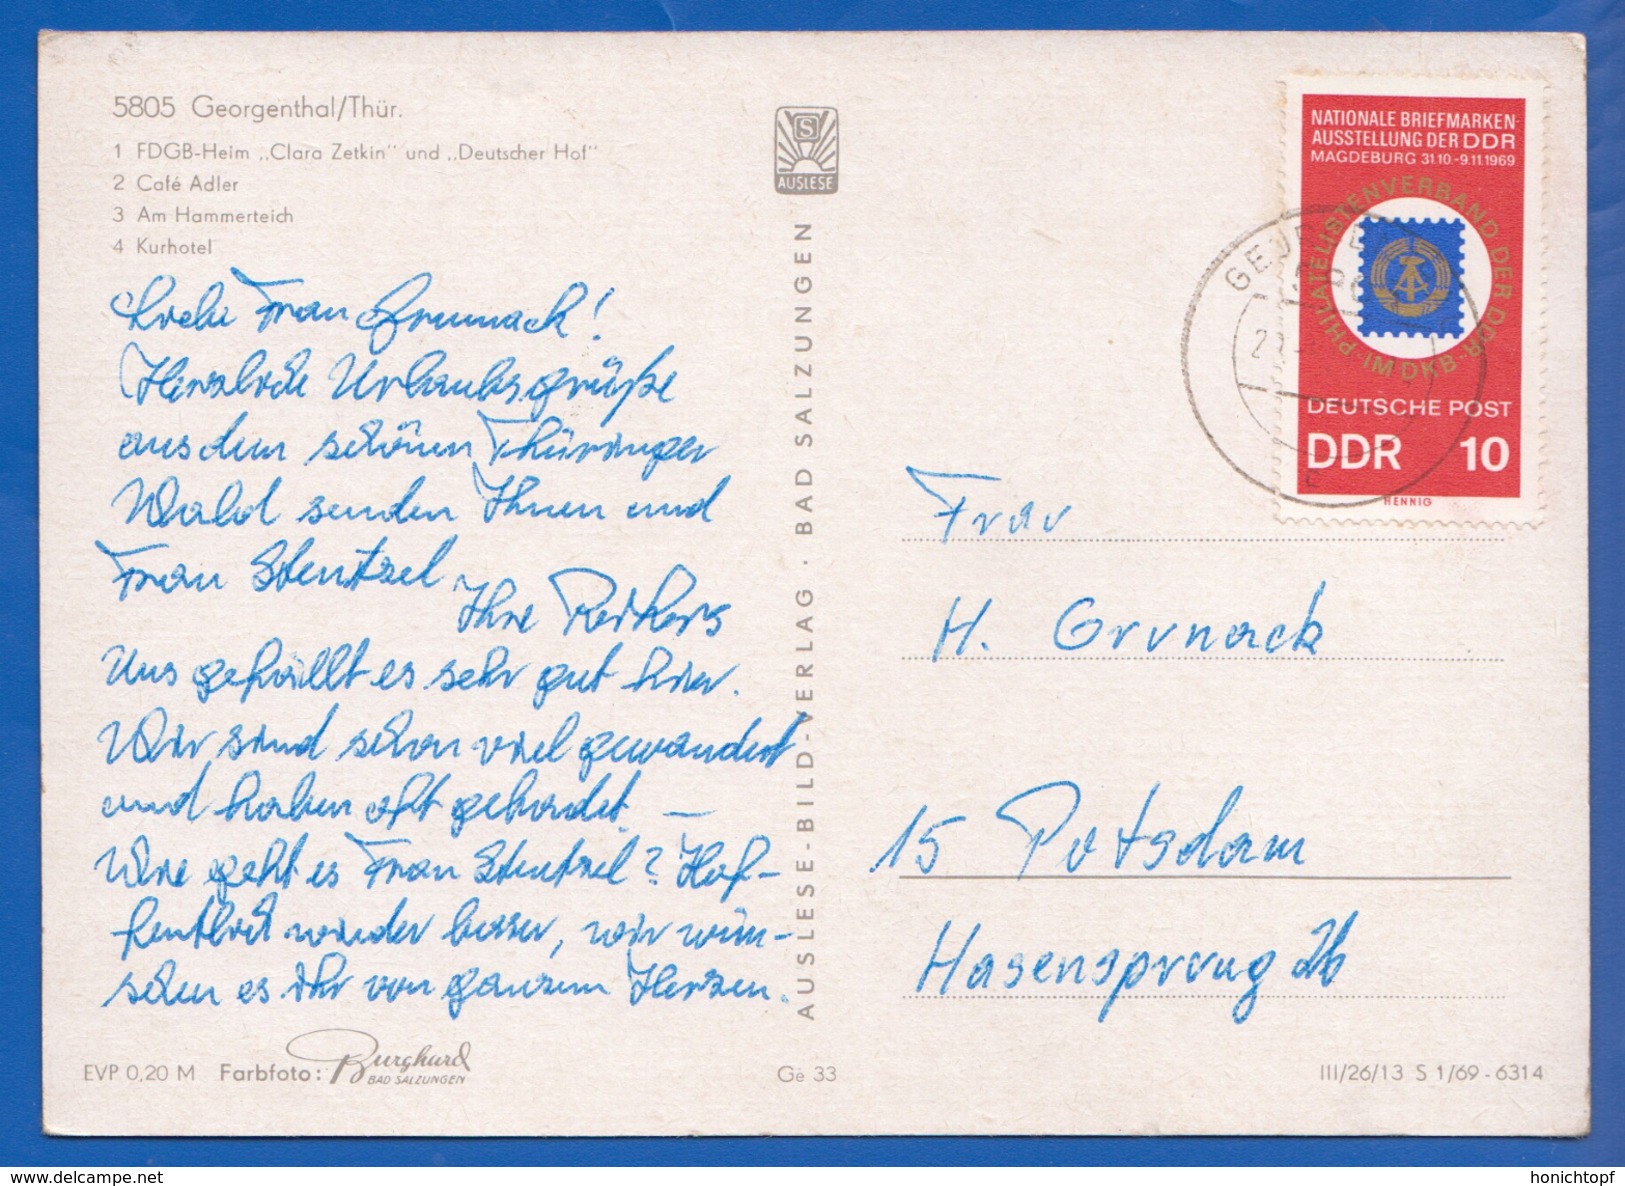 5805 Georgenthal/Thür.
1 FDGB-Heim „Clara Zetkin" und „Deutscher Hof"
2 Café Adler
3 Am Hammerteich
4 Kurhotel
Liebe Frau Grunack!
Herzliche Urlaubsgrüße
aus dem schönen Thüringer
Wald senden Ihnen und
Frau Stentzel
Ihre
Uns gefällt es sehr gut hier.
Wir sind schon viel gewandert
und haben oft gebadet. —
Wie geht es Frau Stentzel? Hof-
fentlich wieder besser, wir wün-
schen es ihr von ganzem Herzen.
EVP 0,20 M Farbfoto: Burghard
BAD SALZUNGEN
S
AUSLESE
AUSLESE-BILD-VERLAG · BAD SALZUNGEN
Ge 33
NATIONALE BRIEFMARKEN-
AUSSTELLUNG DER DDR
MAGDEBURG 31.10.-9.11.1969
PHILATELISTENVERBAND DER DDR · IM DKB ·
DEUTSCHE POST
DDR 10
HENNIG
Frau
H. Grunack
15 Potsdam
Hasensprung 2b
III/26/13 S 1/69 - 6314
delcampe.net
honichtopf